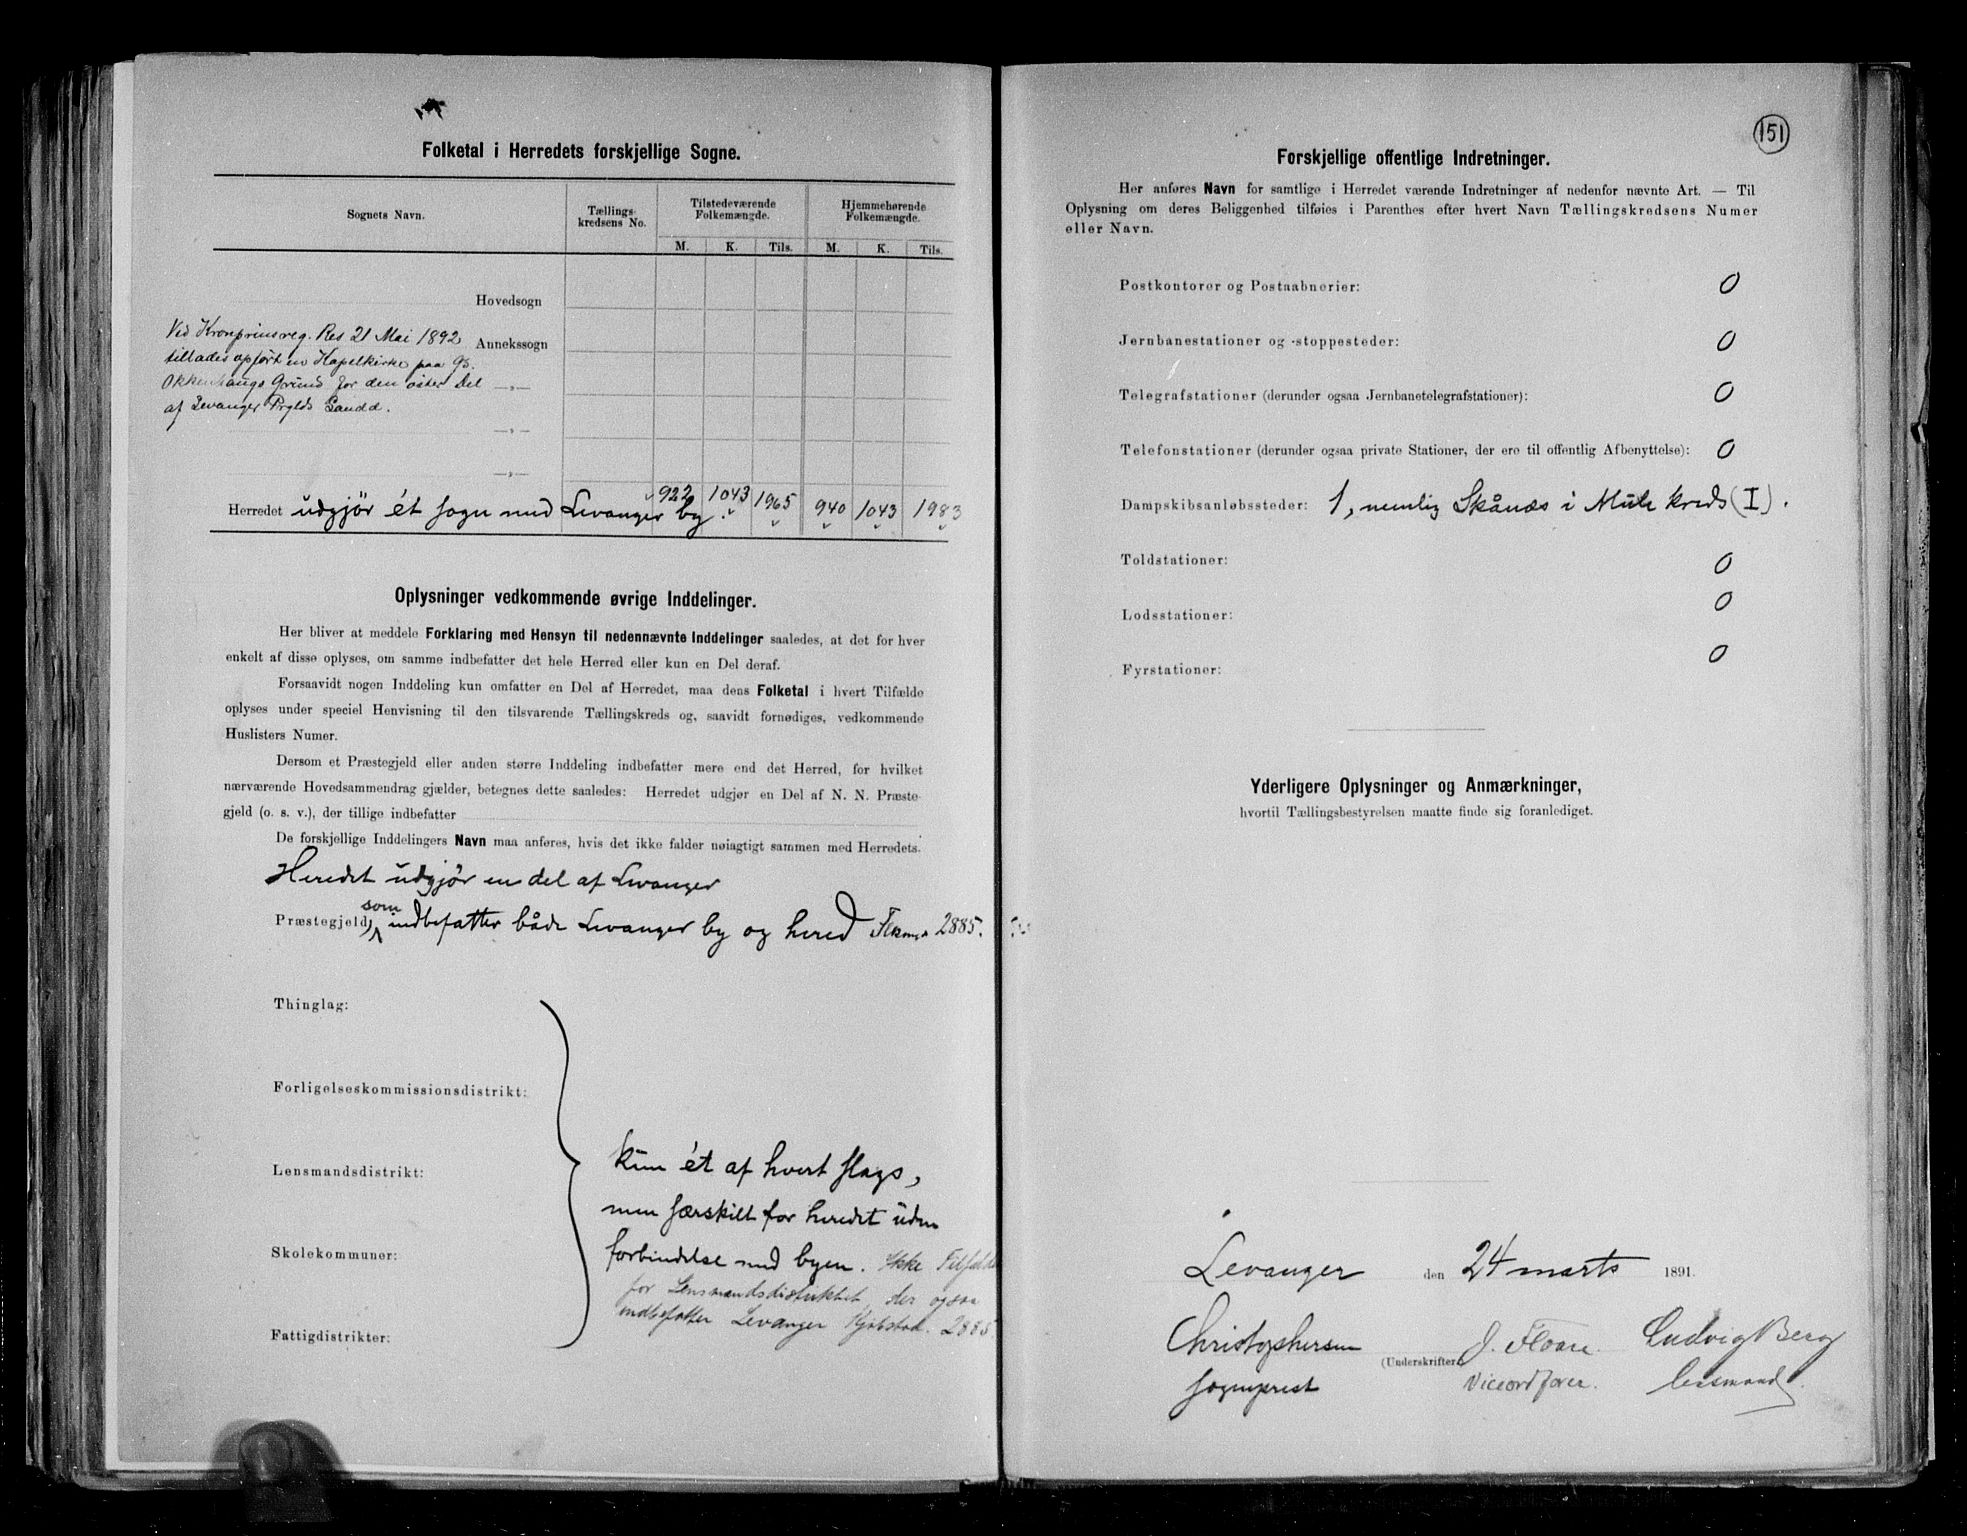 Folketal i Herredets forskjellige Sogne.
Sognets Navn.
Tællings-
kredsens No.
Tilstedeværende
Folkemængde.
Hjemmehørende
Folkemængde.
M. K. Tils. M. K. Tils.
Hovedsogn
Vid Kronprinsreg. Res 21 Mai 1892 Annekssogn
tillades opført en Kapelkirke paa Gs.
Okkenhaugs Grund for den øster Del —„—
af Levanger Prglds Landd.
—„—
—„—
Herredet udgjør ét sogn med Levanger by. 922 1043 1965 940 1043 1983
Oplysninger vedkommende øvrige Inddelinger.
Her bliver at meddele Forklaring med Hensyn til nedennævnte Inddelinger saaledes, at det for hver
enkelt af disse oplyses, om samme indbefatter det hele Herred eller kun en Del deraf.
Forsaavidt nogen Inddeling kun omfatter en Del af Herredet, maa dens Folketal i hvert Tilfælde
oplyses under speciel Henvisning til den tilsvarende Tællingskreds og, saavidt fornødiges, vedkommende
Huslisters Numer.
Dersom et Præstegjeld eller anden større Inddeling indbefatter mere end det Herred, for hvilket
nærværende Hovedsammendrag gjælder, betegnes dette saaledes: Herredet udgjør en Del af N. N. Præste-
gjeld (o. s. v.), der tillige indbefatter
De forskjellige Inddelingers Navn maa anføres, hvis det ikke falder nøiagtigt sammen med Herredets.
Heredet udgjør en del af Levanger
Præstegjeld, som indbefatter både Levanger by og hered 2885.
Thinglag:
Forligelseskommissionsdistrikt:
Lensmandsdistrikt:
Skolekommuner:
Fattigdistrikter:
kun ét af hvert slags,
men særskilt for heredet uden
forbindelse med byen. Ikke Tilfælde
for Lensmandsdistriktet, der ogsaa
indbefatter Levanger Kjøbstad. 2885.
151
Forskjellige offentlige Indretninger.
Her anføres Navn for samtlige i Herredet værende Indretninger af nedenfor nævnte Art. — Til
Oplysning om deres Beliggenhed tilføies i Parenthes efter hvert Navn Tællingskredsens Numer
eller Navn.
Postkontorer og Postaabnerier: 0
Jernbanestationer og -stoppesteder: 0
Telegrafstationer (derunder ogsaa Jernbanetelegrafstationer): 0
Telefonstationer (derunder ogsaa private Stationer, der ere til offentlig Afbenyttelse): 0
Dampskibsanløbssteder: 1, nemlig Skånæs i Mule kreds (I).
Toldstationer: 0
Lodsstationer: 0
Fyrstationer: 0
Yderligere Oplysninger og Anmærkninger,
hvortil Tællingsbestyrelsen maatte finde sig foranlediget.
Levanger den 24 marts 1891.
Christophersen (Underskrifter) J. Floan. Ludvig Berg
sogneprest Viceordfører. lensmand.